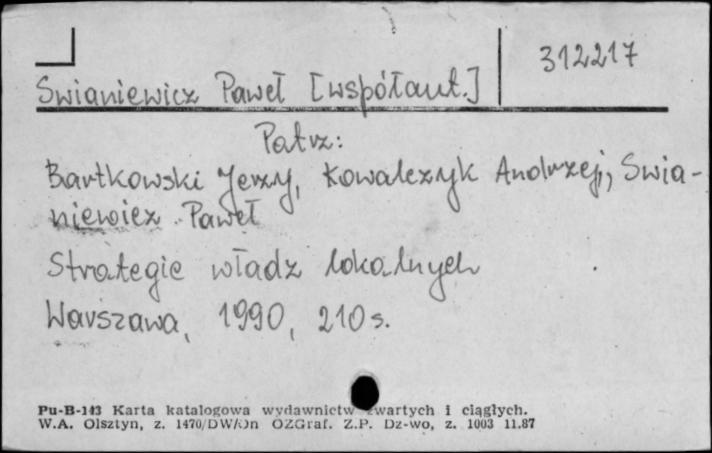 312217
Swianiewicz Paweł [współaut.]
Patrz:
Bartkowski Jerzy, Kowalczyk Andrzej, Swia-
niewicz Paweł
Strategie władz lokalnych
Warszawa, 1990, 210 s.
Pu-B-143 Karta katalogowa wydawnictw zwartych i ciągłych.
W.A. Olsztyn, z. 1470/DW/On OZGraf. Z.P. Dz-wo, z. 1003 11.87